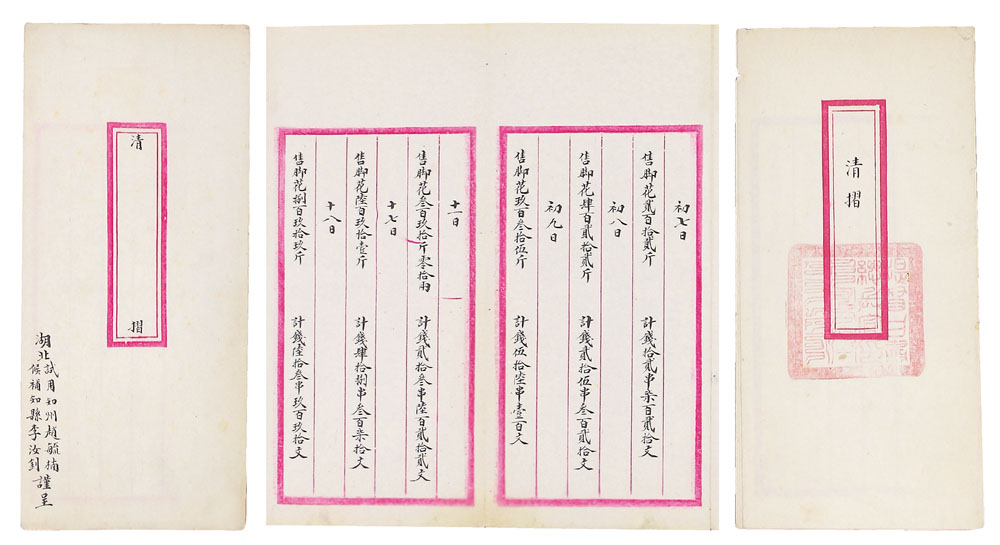 清摺
湖北
試用知州趙毓楠
候補知縣李汝釗
謹呈
初七日
售脚花貳百拾貳斤 計錢拾貳串柒百貳拾文
初八日
售脚花肆百貳拾貳斤 計錢貳拾伍串叁百貳拾文
初九日
售脚花玖百叁拾伍斤 計錢伍拾陸串壹百文
十一日
售脚花叁百玖拾斤零拾兩 計錢貳拾叁串陸百貳拾貳文
十七日
售脚花陸百玖拾壹斤 計錢肆拾捌串叁百柒拾文
十八日
售脚花捌百玖拾玖斤 計錢陸拾叁串玖百玖拾文
清摺